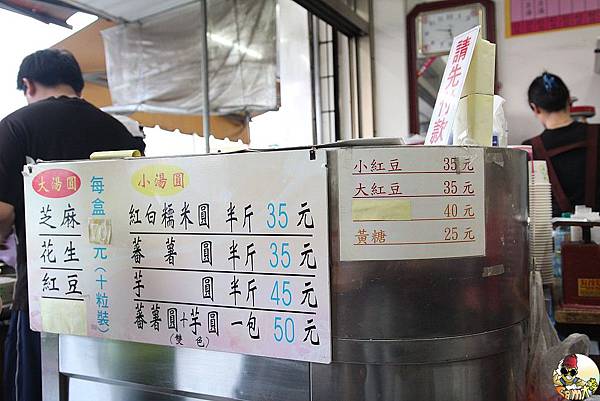 請先付款
大湯圓
芝麻
花生
紅豆
每盒 元(十粒裝)
小湯圓
紅白糯米圓 半斤 35 元
蕃薯圓 半斤 35 元
芋圓 半斤 45 元
蕃薯圓+芋圓 一包 50 元
(雙色)
小紅豆 35 元
大紅豆 35 元
40 元
黃糖 25 元